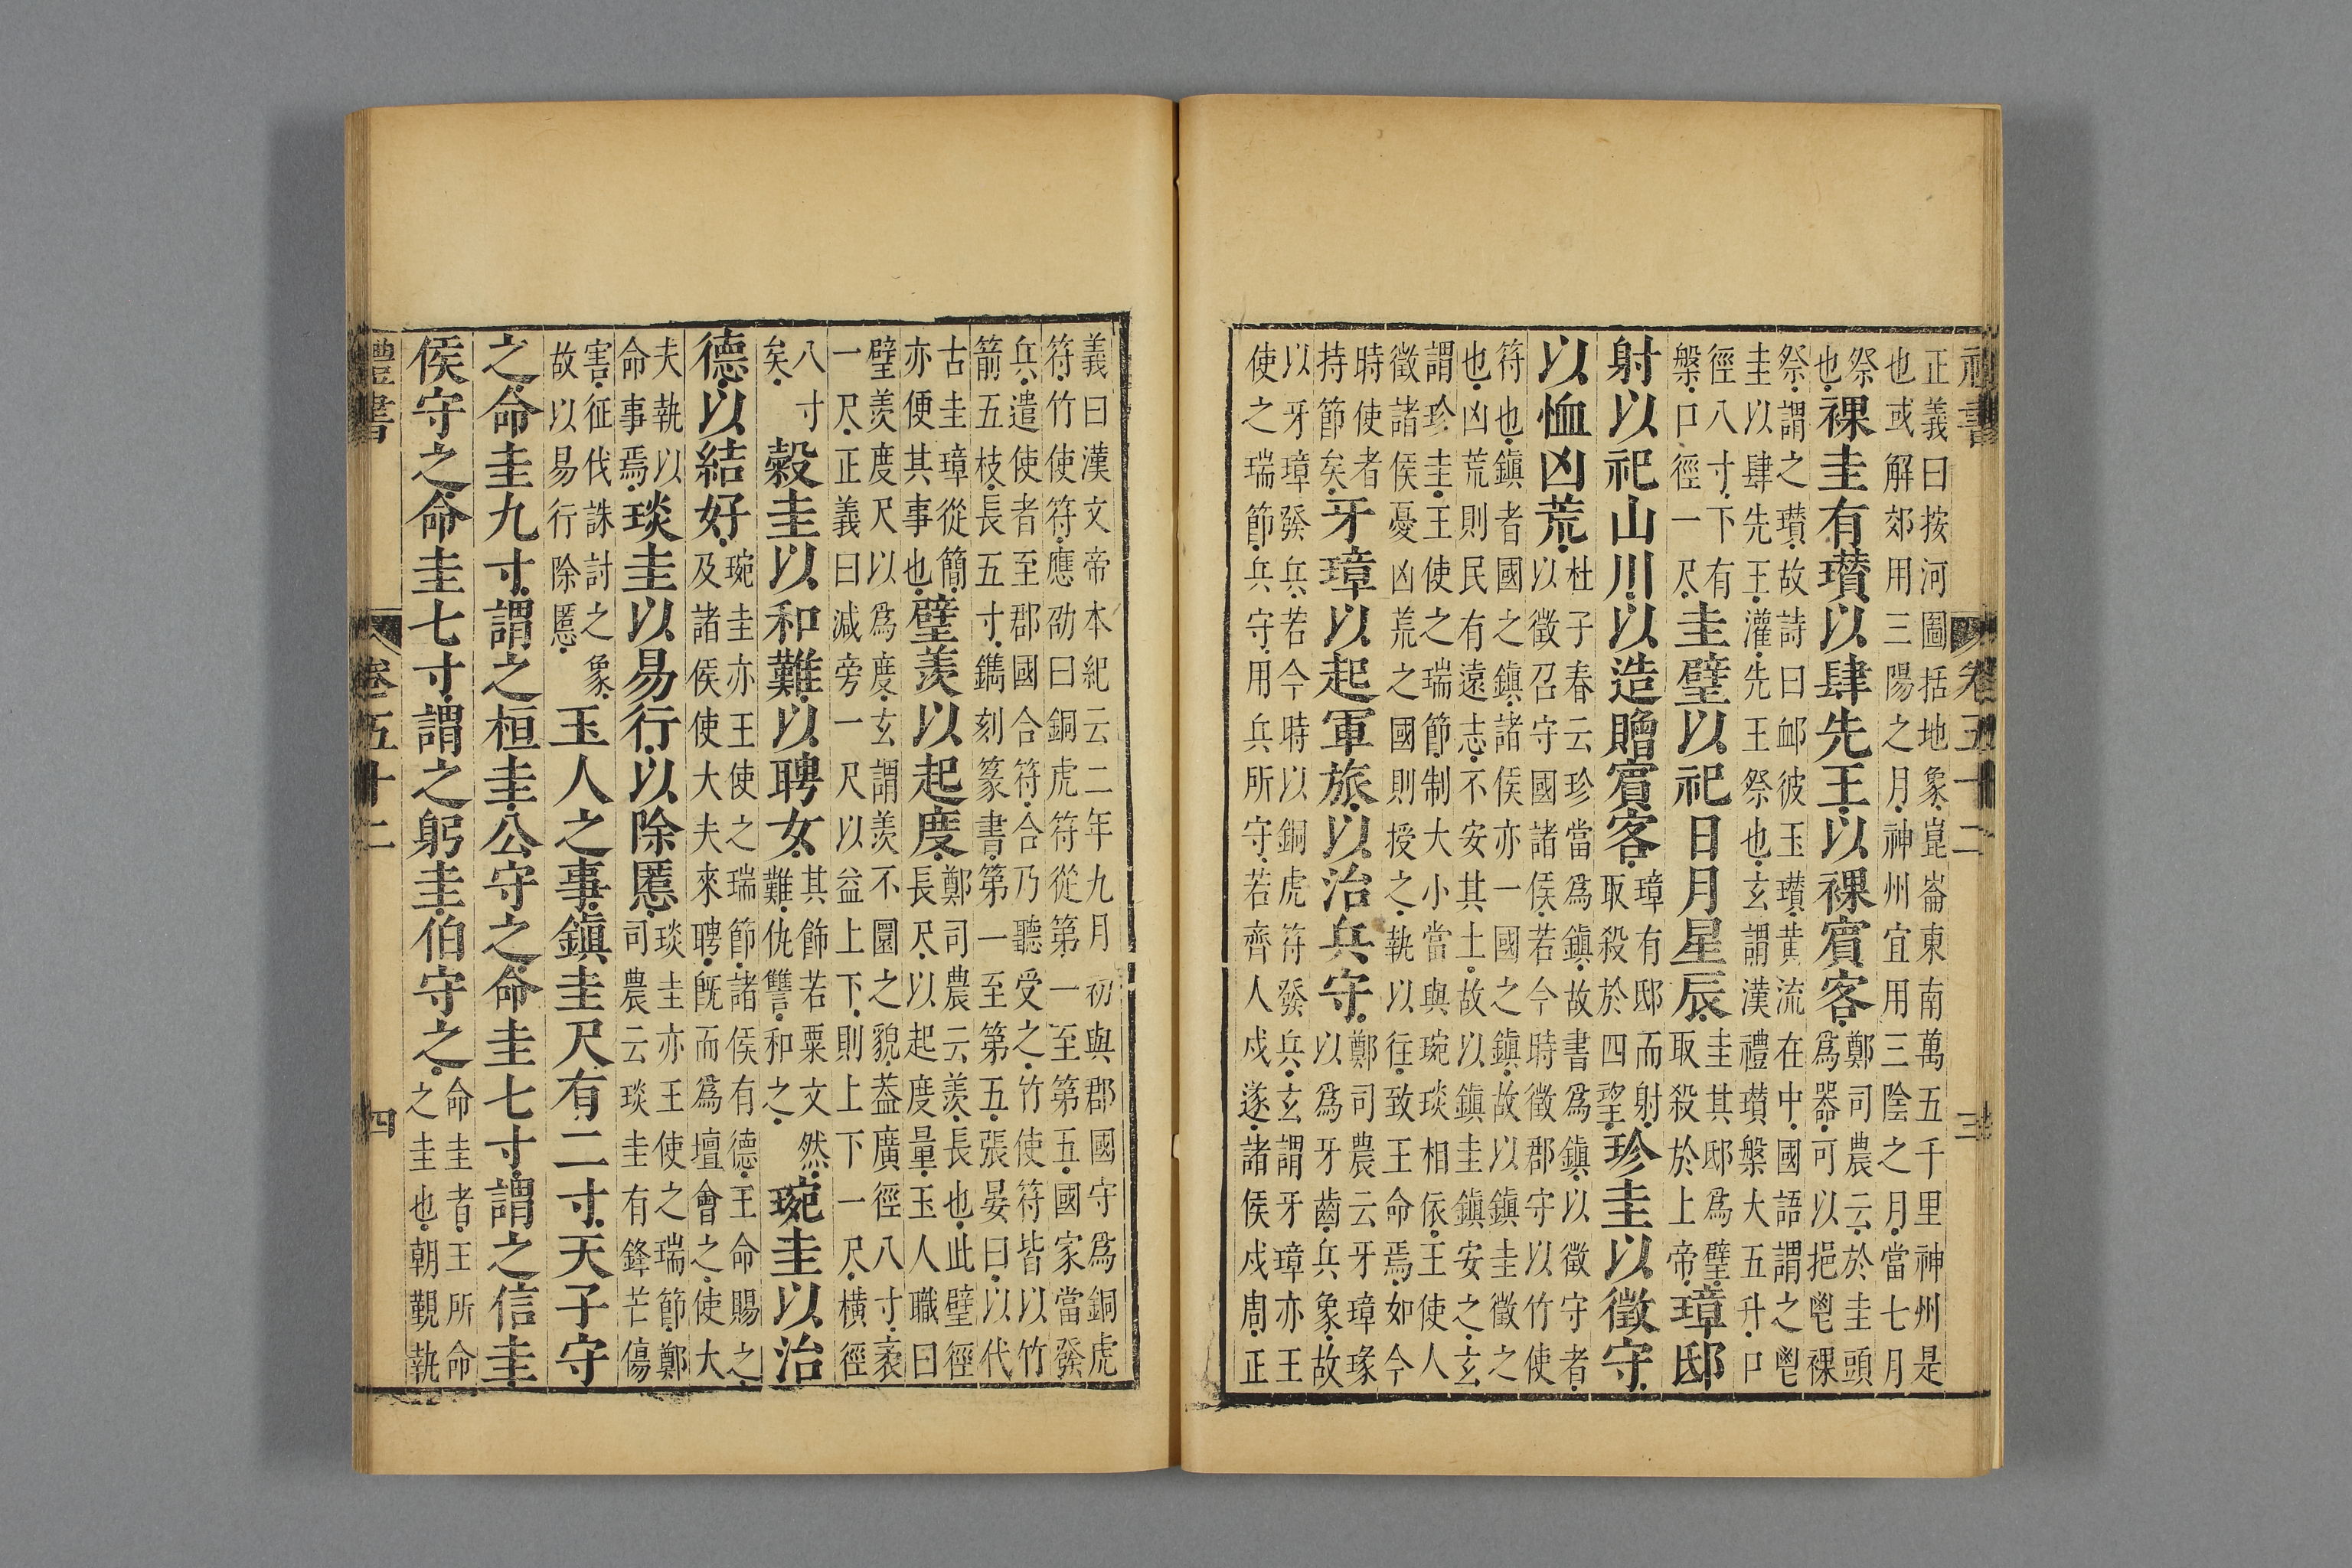 禮書 卷五十二 三
正義曰按河圖括地象崑崙東南萬五千里神州是
也或解郊用三陽之月神州宜用三陰之月當七月
祭也祼圭有瓚以肆先王以祼賓客鄭司農云於圭頭爲器可以挹鬯祼
祭謂之瓚故詩曰卹彼玉瓚黄流在中國語謂之鬯
圭以肆先王灌先王祭也玄謂漢禮瓚槃大五升口
徑八寸下有槃口徑一尺圭璧以祀日月星辰圭其邸爲璧取殺於上帝璋邸
射以祀山川以造贈賓客璋有邸而射取殺於四望珍圭以徵守
以恤凶荒杜子春云珍當爲鎮故書爲鎮以徵守者以徵召守國諸侯若今時徵郡守以竹使
符也鎮者國之鎮諸侯亦一國之鎮故以鎮圭徵之
也凶荒則民有遠志不安其土故以鎮圭鎮安之玄
謂珍圭王使之瑞節制大小當與琬琰相依王使人
徵諸侯憂凶荒之國則授之執以往致王命焉如今
時使者持節矣牙璋以起軍旅以治兵守鄭司農云牙璋瑑以爲牙齒兵象故
以牙璋發兵若今時以銅虎符發兵玄謂牙璋亦王
使之瑞節兵守用兵所守若齊人戍遂諸侯戍周正
義曰漢文帝本紀云二年九月初與郡國守爲銅虎
符竹使符應劭曰銅虎符從第一至第五國家當發
兵遣使者至郡國合符合乃聽受之竹使符皆以竹
箭五枝長五寸鐫刻篆書第一至第五張晏曰以代
古圭璋從簡亦便其事也璧羨以起度鄭司農云羨長也此璧徑長尺以起度量玉人職曰
璧羨度尺以爲度玄謂羨不圜之貌葢廣徑八寸袤
一尺正義曰減旁一尺以益上下則上下一尺橫徑
八寸矣榖圭以和難以聘女其飾若粟文然難仇讐和之琬圭以治
德以結好琬圭亦王使之瑞節諸侯有德王命賜之及諸侯使大夫來聘旣而爲壇會之使大
夫執以命事焉琰圭以易行以除慝琰圭亦王使之瑞節鄭司農云琰圭有鋒芒傷
害征伐誅討之象故以易行除慝玉人之事鎮圭尺有二寸天子守
之命圭九寸謂之桓圭公守之命圭七寸謂之信圭
侯守之命圭七寸謂之躬圭伯守之命圭者王所命之圭也朝覲執
禮書 卷五十二 四